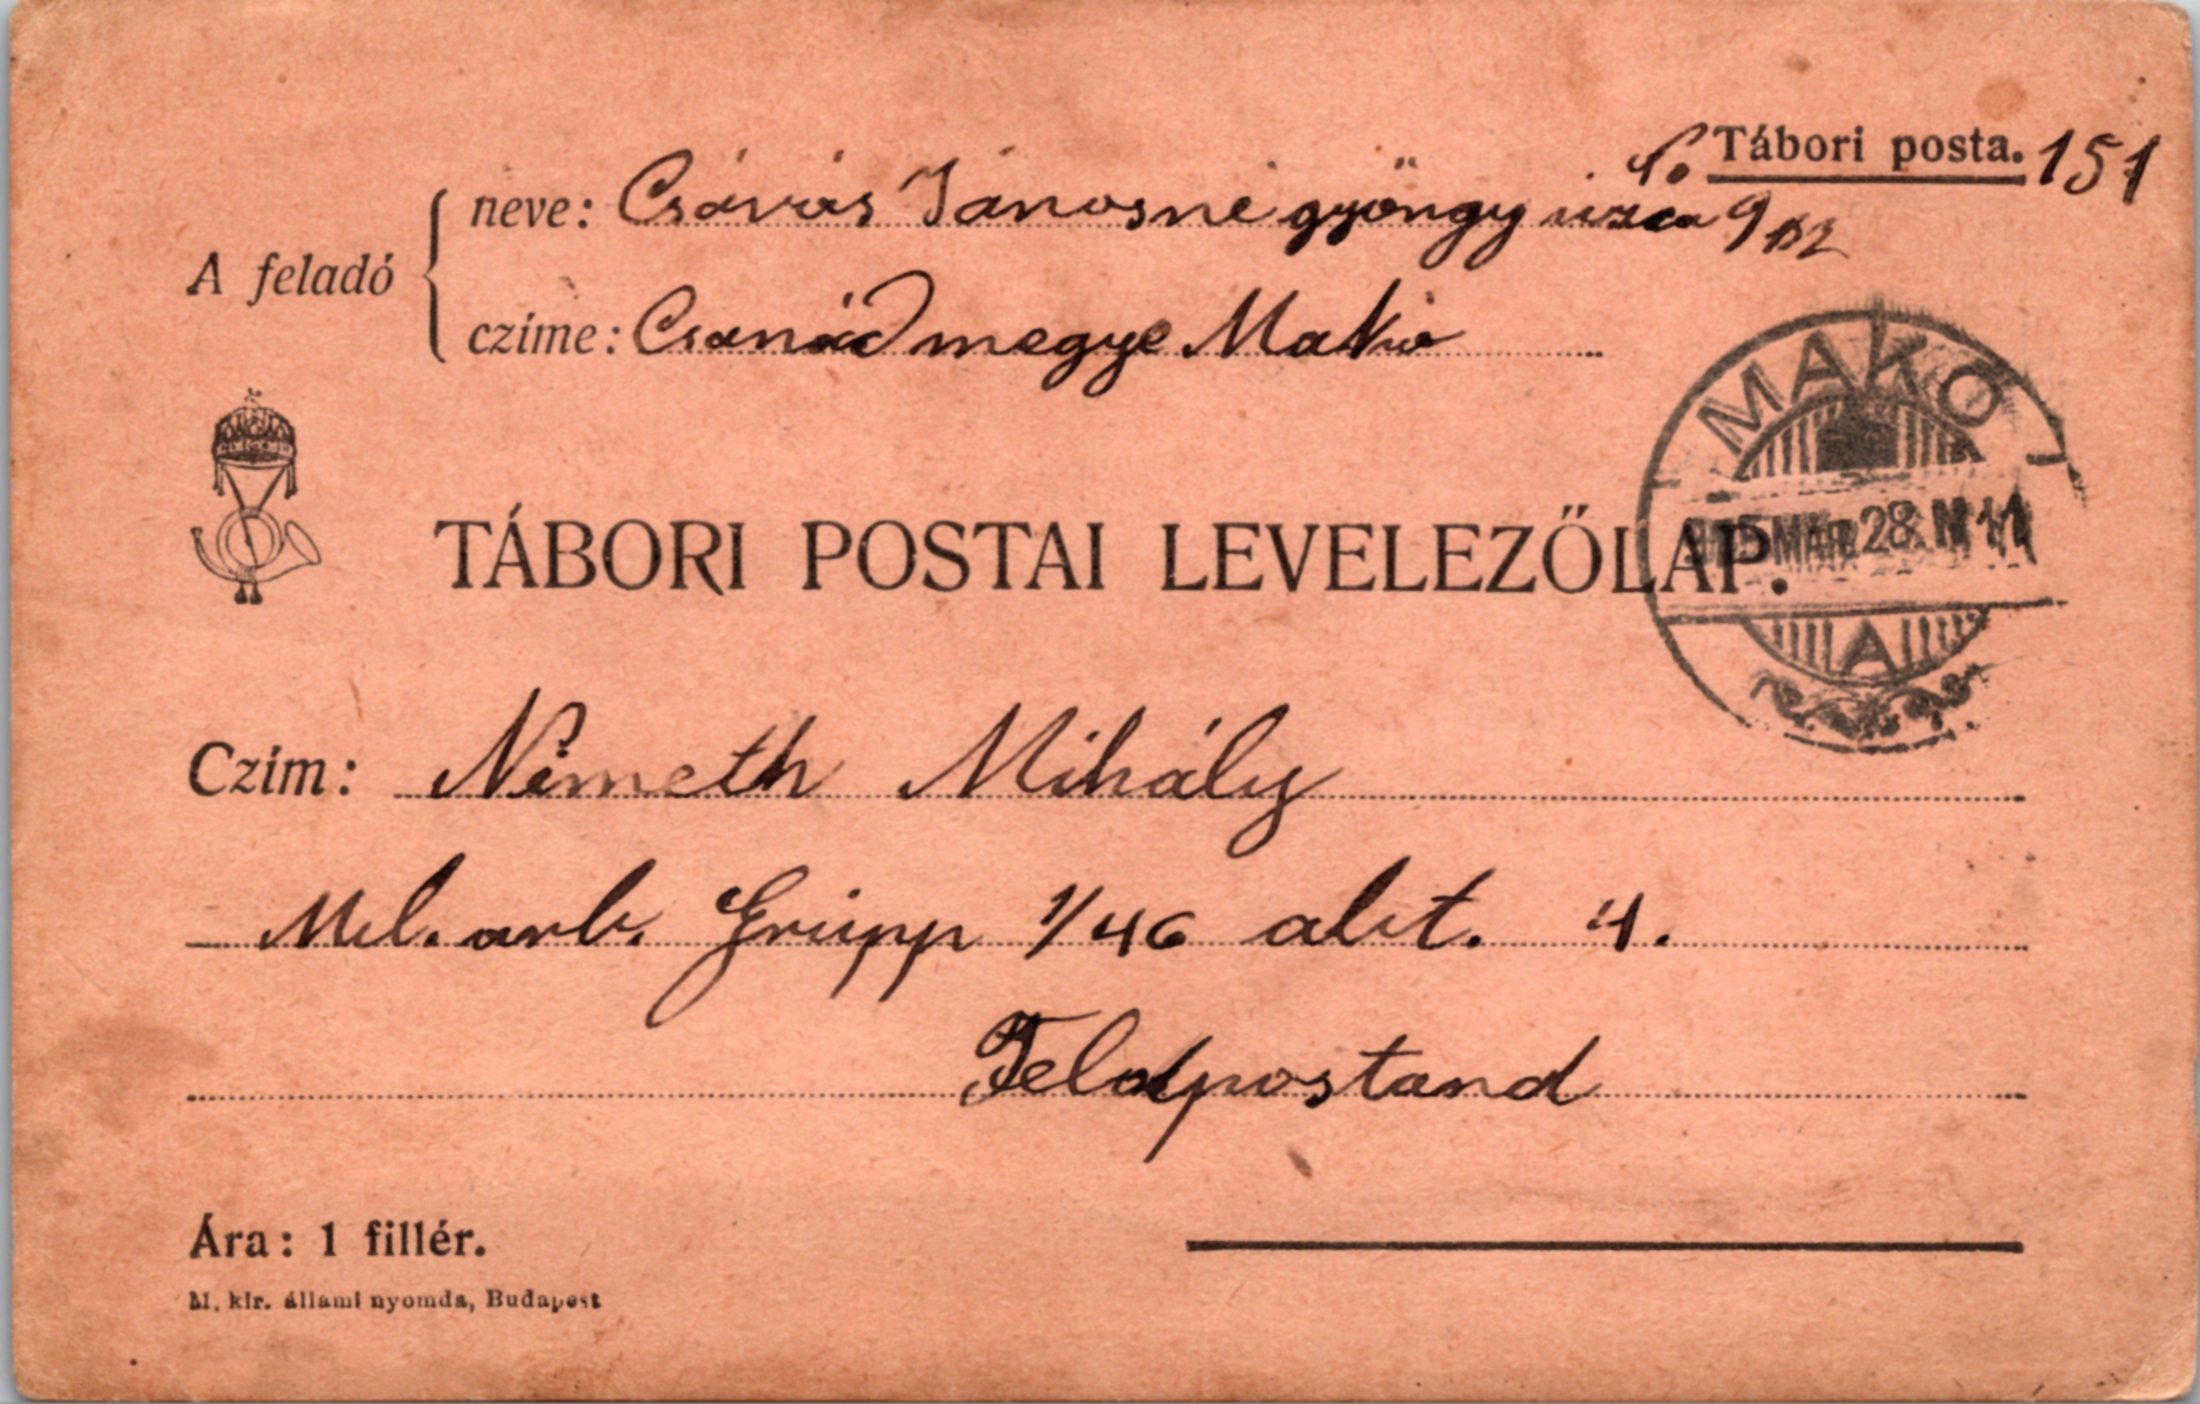 Tábori posta. 151
A feladó
neve: Csávás Jánosné gyöngy uzca 9
czíme: Csanádmegye Makó
MAKÓ
915 MÁR. 28. N 11
A
TÁBORI POSTAI LEVELEZŐLAP.
Czím: Németh Mihály
Mil. arb. Grupp 1/46 abt. 4.
Feldpostand
Ára: 1 fillér.
M. kir. állami nyomda, Budapest